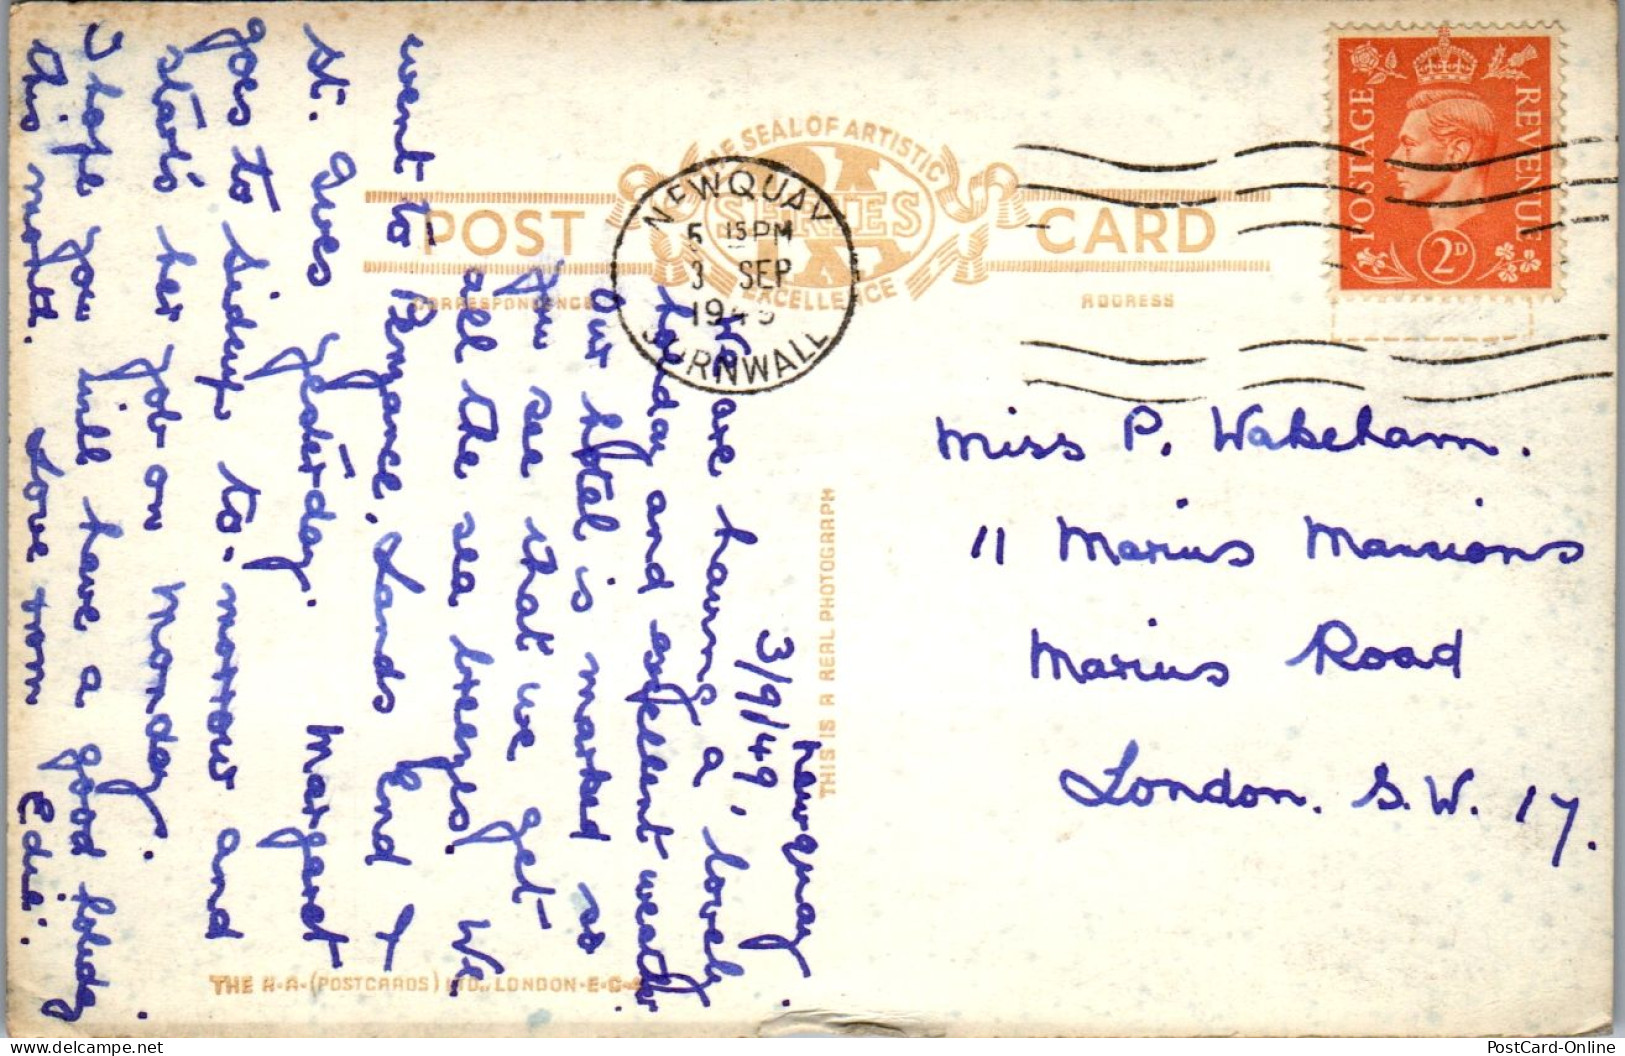 THE SEAL OF ARTISTIC
EXCELLENCE
SERIES
POST CARD
CORRESPONDENCE
ADDRESS
NEWQUAY
5 15 PM
3 SEP
1949
CORNWALL
POSTAGE
REVENUE
2D
Newquay.
3/9/49.
We are having a lovely
holiday and excellent weather
Our hotel is marked so
you see that we get
all the sea breezes. We
went to Penzance, Lands End &
St. Ives yesterday. Margaret
goes to Sidcup to-morrow and
starts her job on Monday.
I hope you will have a good holiday
this month. Love from Edie.
Miss P. Wakeham.
11 Marius Mansions
Marius Road
London. S.W. 17.
THIS IS A REAL PHOTOGRAPH
THE R.A. (POSTCARDS) LTD., LONDON. E.C.4
PostCard-Online